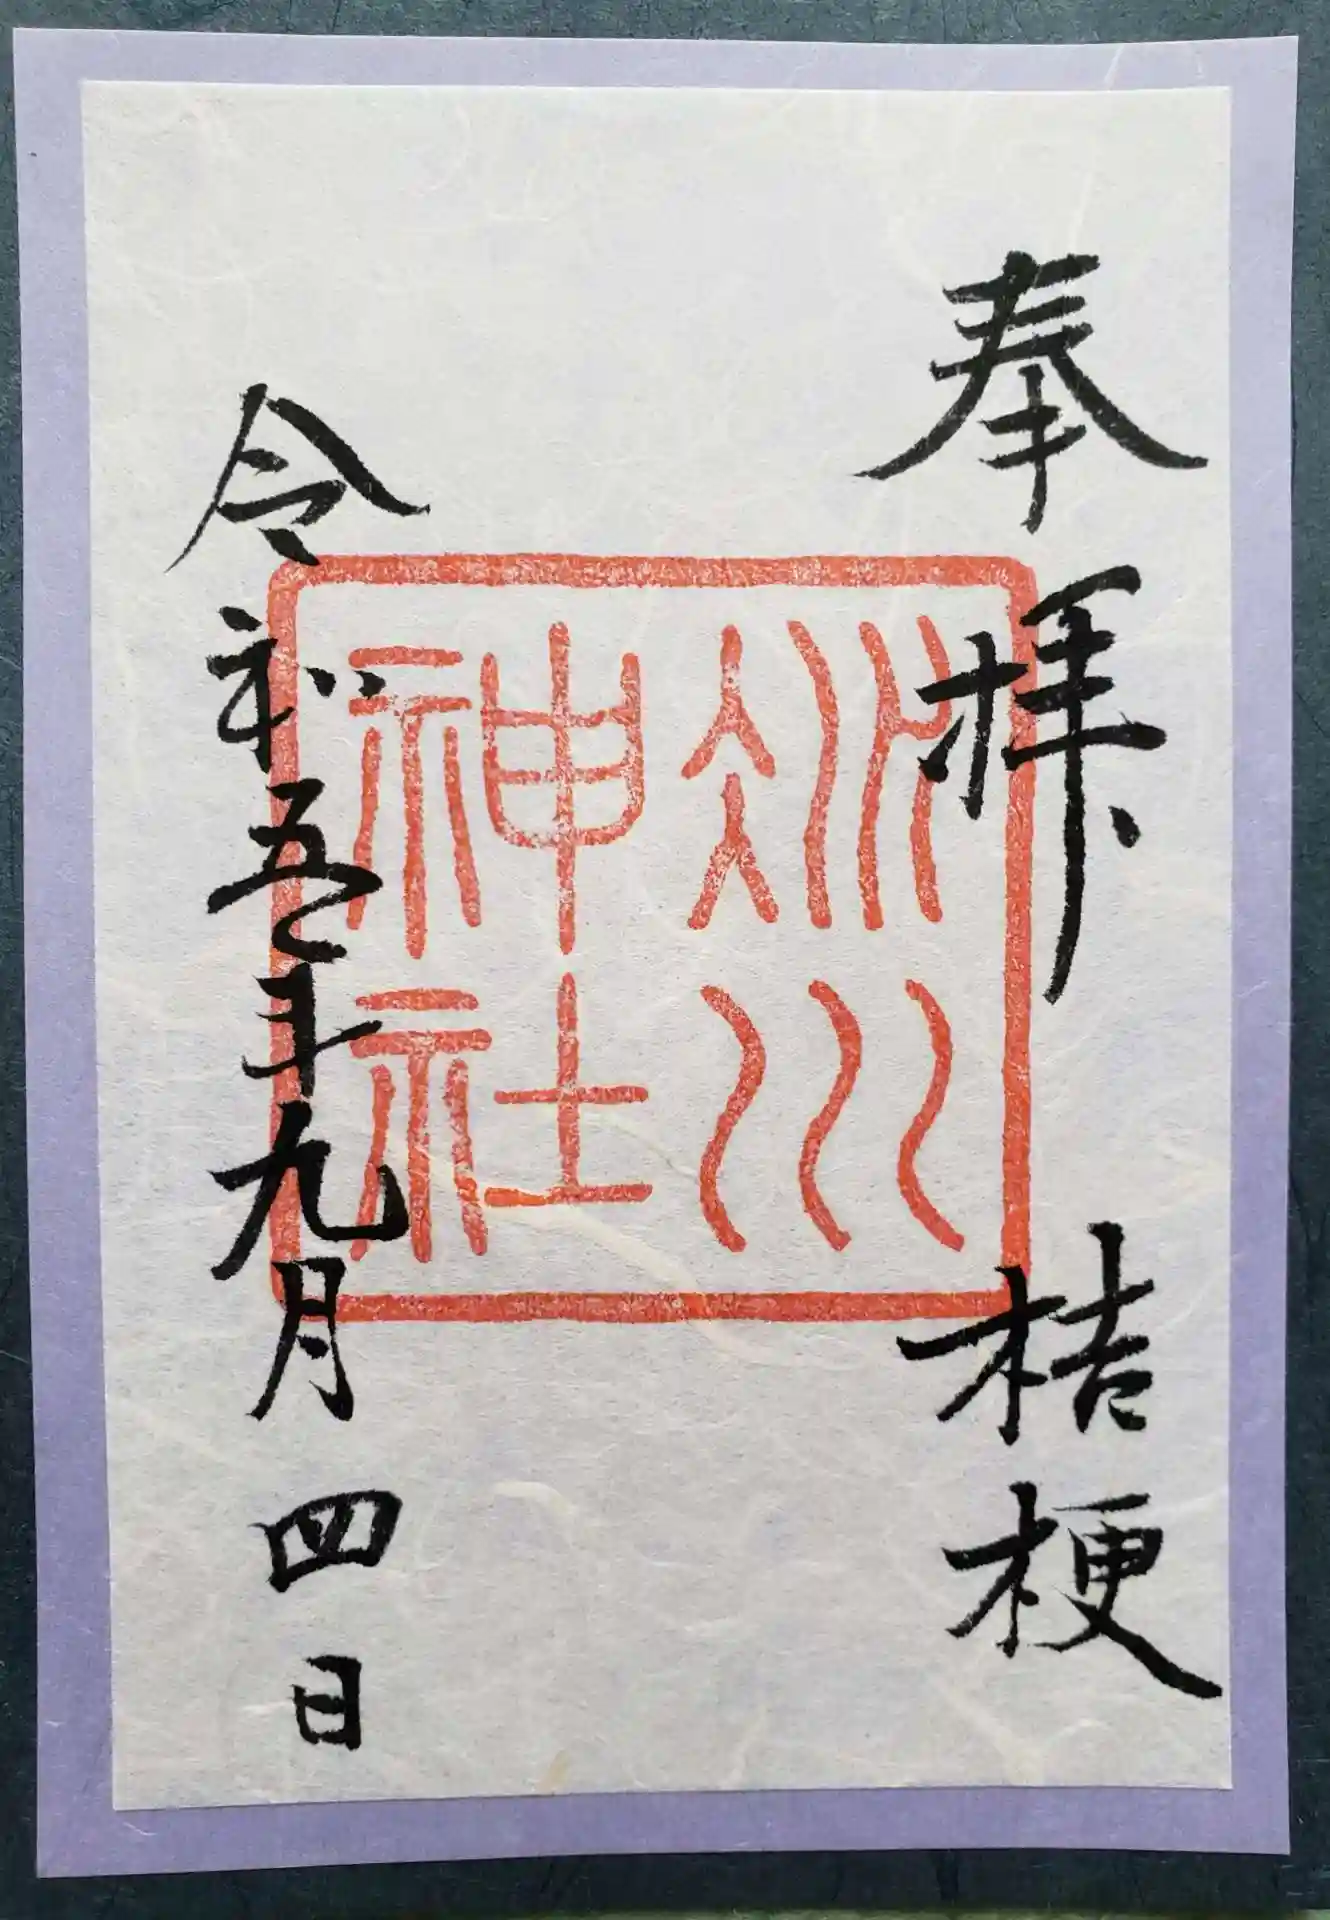 奉拝 桔梗
冰川
神社
令和五年九月四日